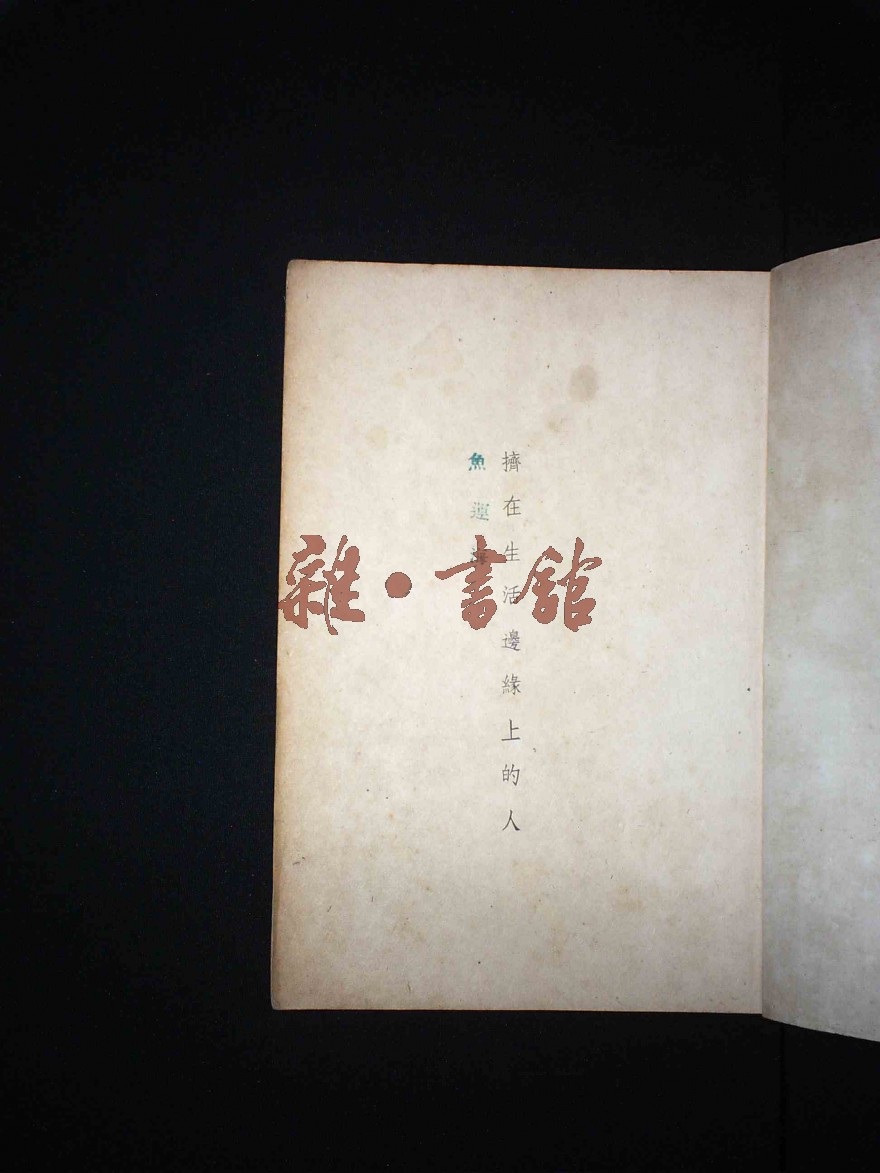 擠在生活邊緣上的人
魚運海
雜·書館